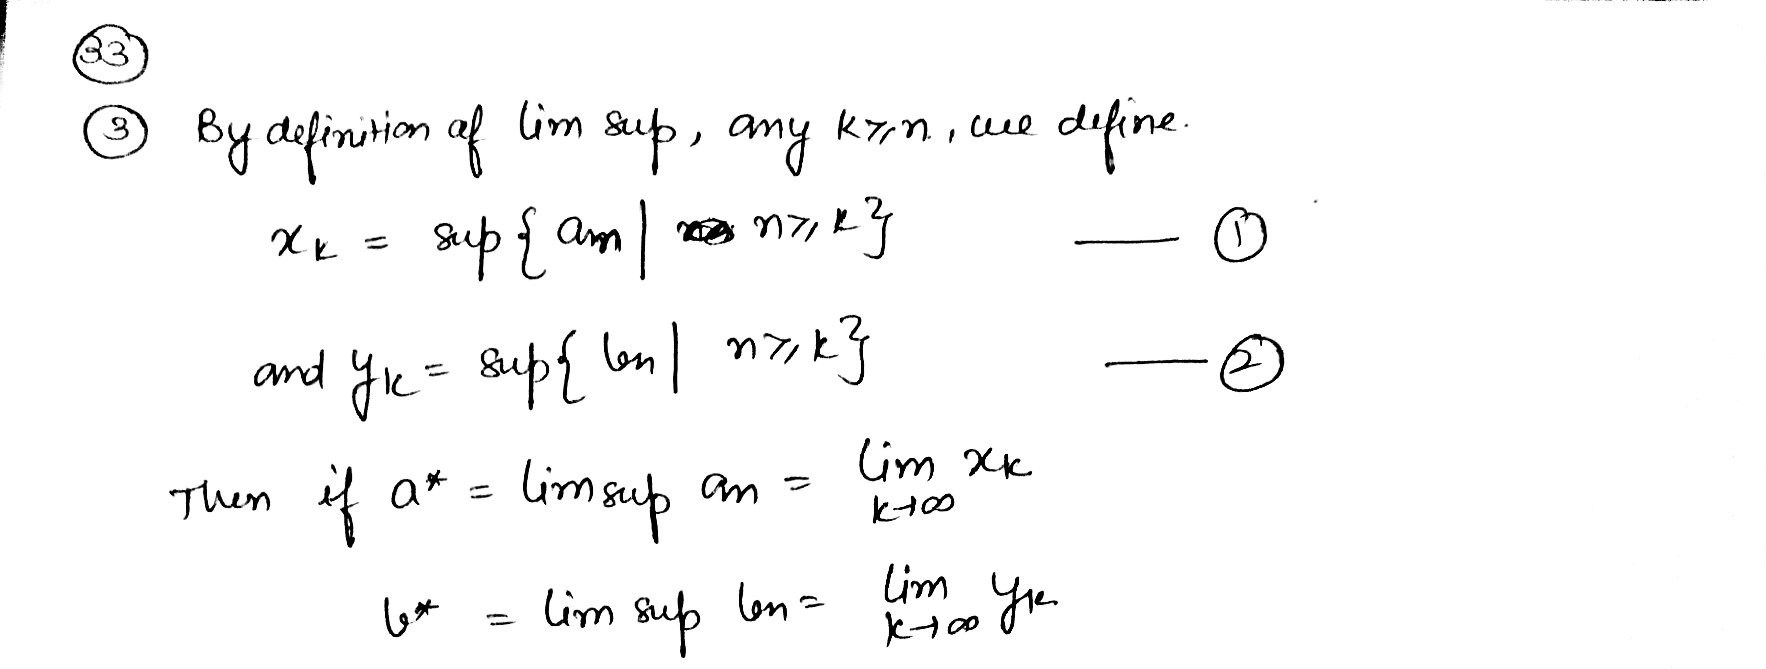 33
3 By definition of lim sup, any k⩾n, we define.
xₖ = sup{ an | n⩾k} — 1
and yₖ = sup{ bn | n⩾k} — 2
Then if a* = lim sup an = lim xₖ
k→∞
b* = lim sup bn = lim yₖ
k→∞